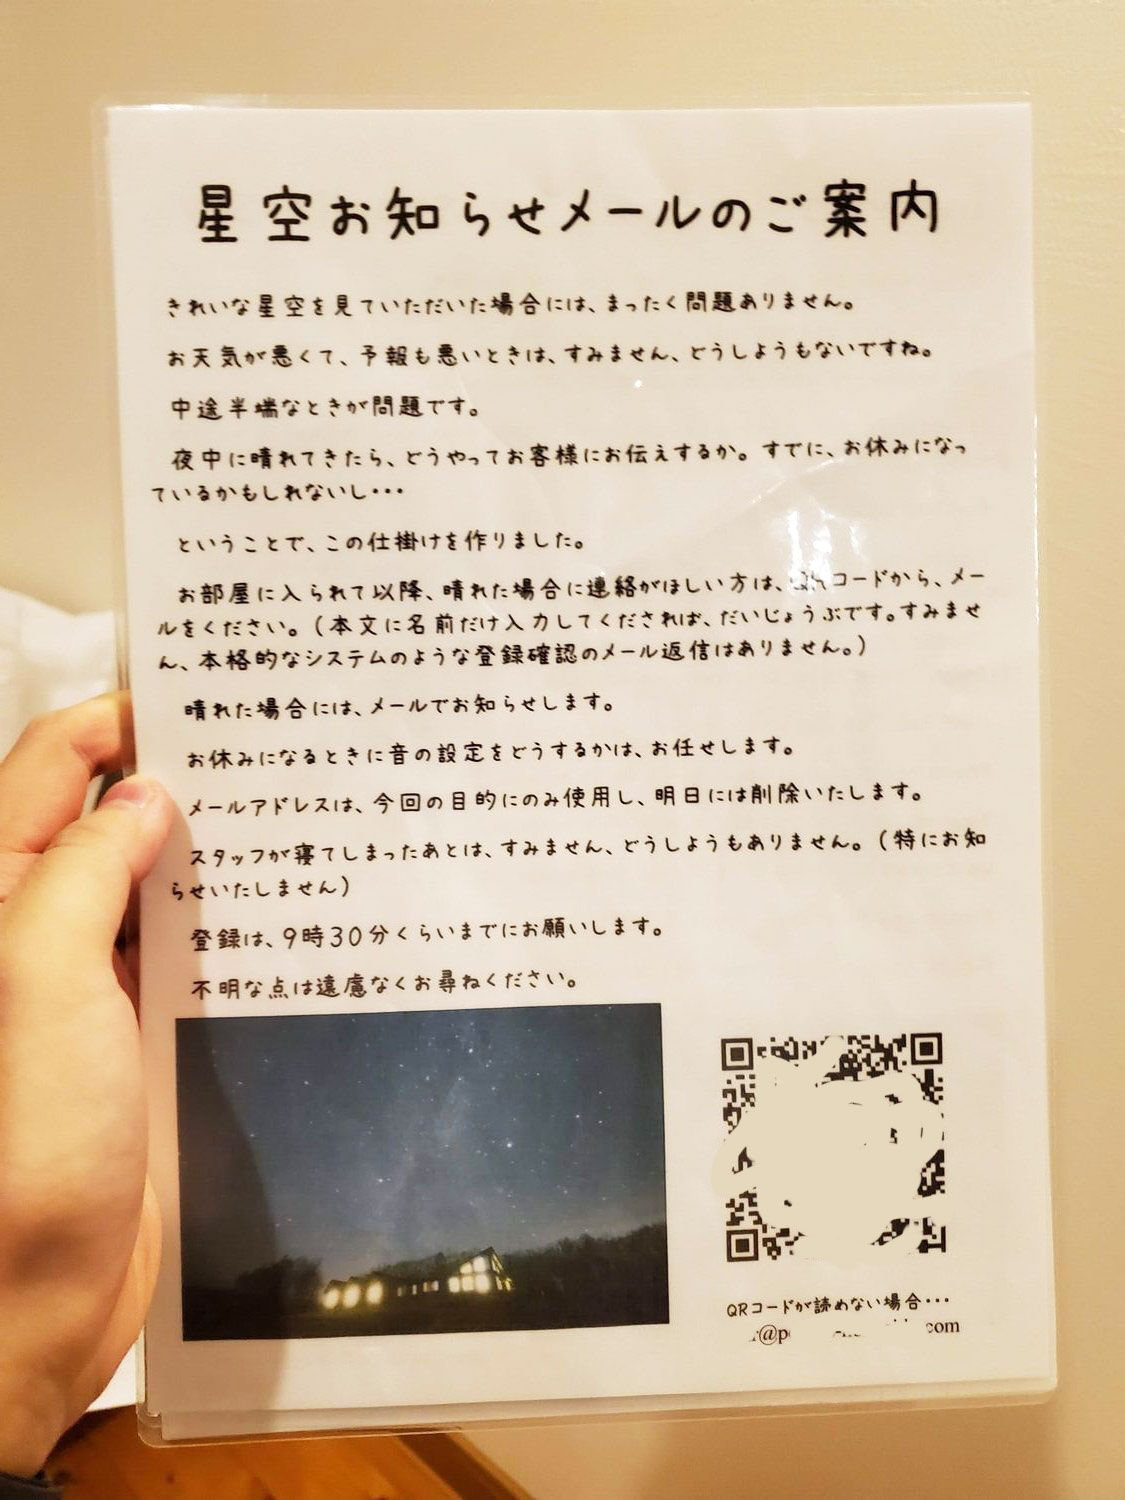 星空お知らせメールのご案内
きれいな星空を見ていただいた場合には、まったく問題ありません。
お天気が悪くて、予報も悪いときは、すみません、どうしようもないですね。
中途半端なときが問題です。
夜中に晴れてきたら、どうやってお客様にお伝えするか。すでに、お休みになっ
ているかもしれないし・・・
ということで、この仕掛けを作りました。
お部屋に入られて以降、晴れた場合に連絡がほしい方は、QRコードから、メー
ルをください。（本文に名前だけ入力してくだされば、だいじょうぶです。すみませ
ん、本格的なシステムのような登録確認のメール返信はありません。）
晴れた場合には、メールでお知らせします。
お休みになるときに音の設定をどうするかは、お任せします。
メールアドレスは、今回の目的にのみ使用し、明日には削除いたします。
スタッフが寝てしまったあとは、すみません、どうしようもありません。（特にお知
らせいたしません）
登録は、9時30分くらいまでにお願いします。
不明な点は遠慮なくお尋ねください。
QRコードが読めない場合・・・
@p com